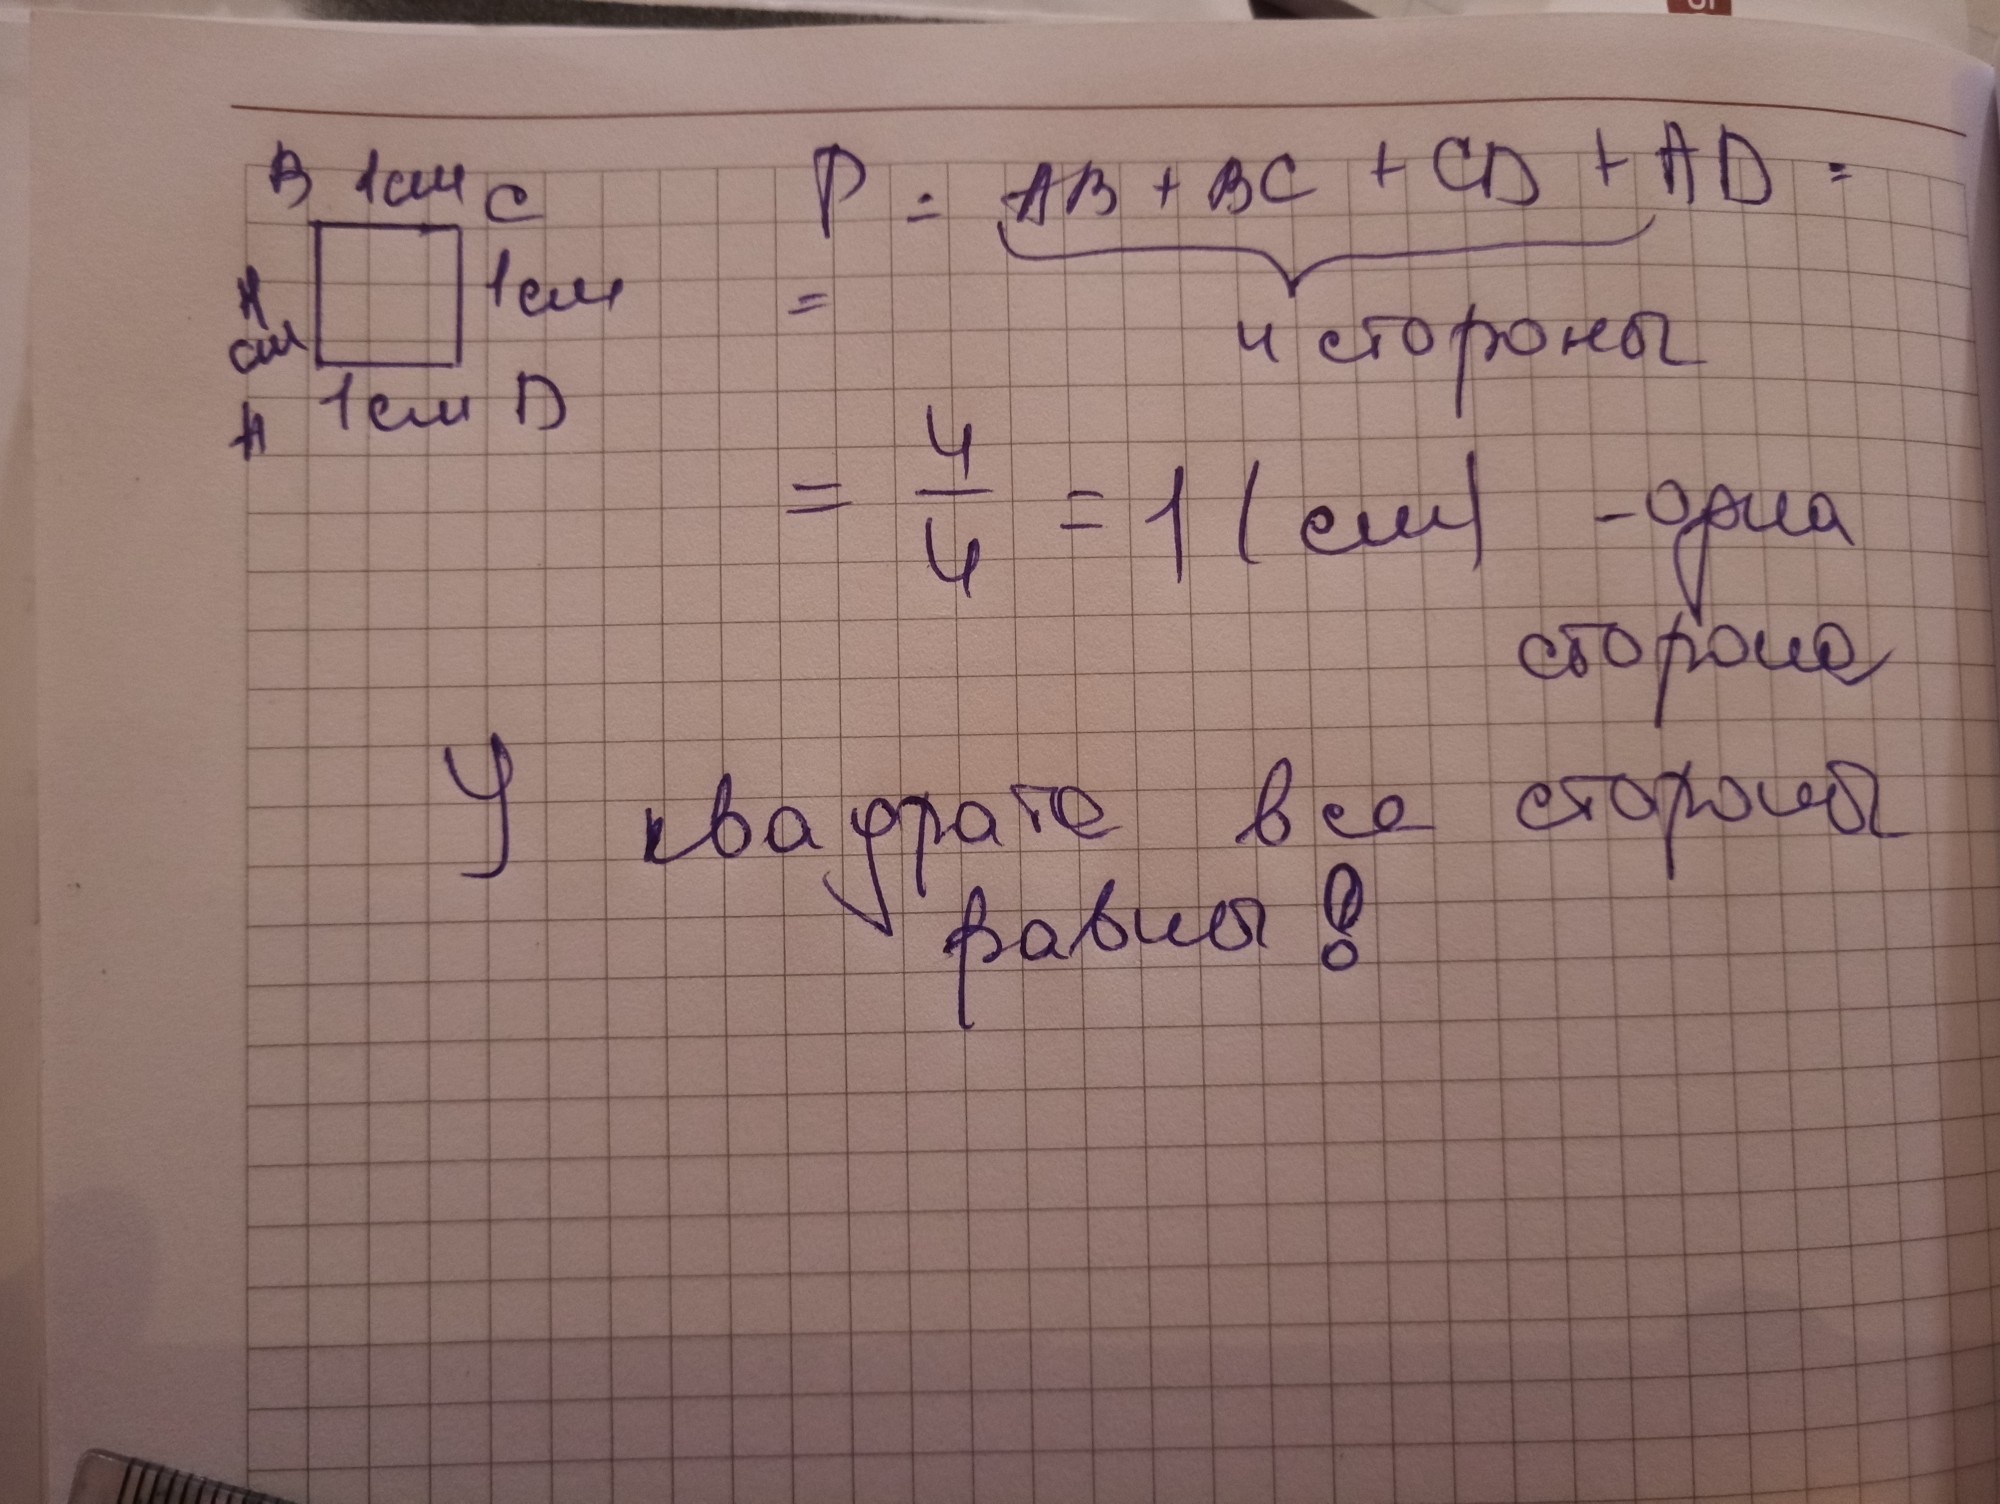 B 1см C
P = AB + BC + CD + AD =
1см
см
=
4 стороны
A 1см D
= 4/4 = 1 (см) - одна
сторона
У квадрата все стороны
равны!